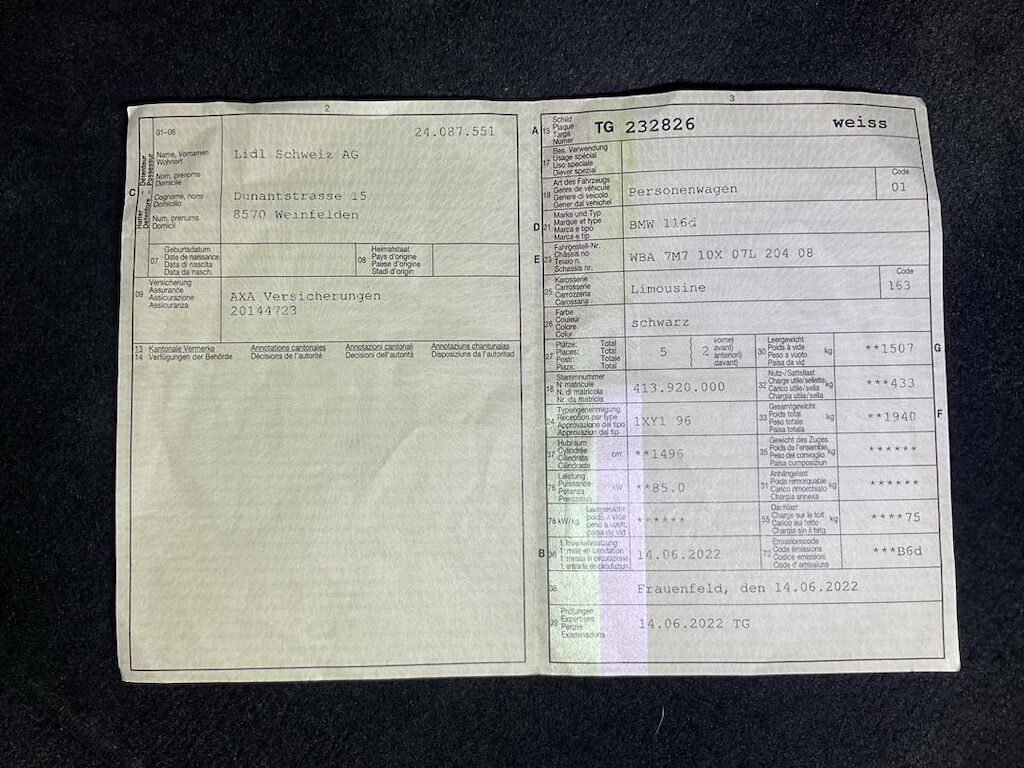 2
01-06
24.087.551
C
Halter Détenteur
Detentore Possessur
Name, Vornamen
Wohnort
Nom, prénoms
Domicile
Cognome, nomi
Domicilio
Num, prenums
Domicil
Lidl Schweiz AG
Dunantstrasse 15
8570 Weinfelden
07
Geburtsdatum
Date de naissance
Data di nascita
Data da nasch.
08
Heimatstaat
Pays d'origine
Paese d'origine
Stadi d'origin
09
Versicherung
Assurance
Assicurazione
Assicuranza
AXA Versicherungen
20144723
13 Kantonale Vermerke Annotations cantonales Annotazioni cantonali Annotaziuns chantunalas
14 Verfügungen der Behörde Décisions de l'autorité Decisioni dell'autorità Disposiziuns da l'autoritad
3
A 15
Schild
Plaque
Targa
Numer
TG 232826 weiss
17
Bes. Verwendung
Usage spécial
Uso speciale
Diever spezial
19
Art des Fahrzeugs
Genre de véhicule
Genere di veicolo
Gener dal vehichel
Personenwagen
Code
01
D 21
Marke und Typ
Marque et type
Marca e tipo
Marca e tip
BMW 116d
E 23
Fahrgestell-Nr.
Châssis no
Telaio n.
Schassis nr.
WBA 7M7 10X 07L 204 08
25
Karosserie
Carrosserie
Carrozzeria
Carossaria
Limousine
Code
163
26
Farbe
Couleur
Colore
Colur
schwarz
27
Plätze: Total
Places: Total
Posti: Totale
Plazs: Total
5
2
vorne)
avant)
anteriori)
davant)
30
Leergewicht
Poids à vide
Peso a vuoto
Paisa da vid
kg
**1507
G
18
Stammnummer
N matricule
N. di matricola
Nr. da matricla
413.920.000
32
Nutz-/Sattellast
Charge utile/sellette
Carico utile/sella
Chargia utila/sella
kg
***433
24
Typengenehmigung
Réception par type
Approvazione del tipo
Approvaziun dal tip
1XY1 96
33
Gesamtgewicht
Poids total
Peso totale
Paisa totala
kg
**1940
F
37
Hubraum
Cylindrée
Cilindrata
Cilindrada
cm³
**1496
35
Gewicht des Zuges
Poids de l'ensemble
Peso del convoglio
Paisa cumposiziun
kg
******
76
Leistung
Puissance
Potenza
Prestaziun
kW
**85.0
31
Anhängelast
Poids remorquable
Carico rimorchiato
Chargia annexa
kg
******
78 kW/kg
Leergewicht
poids à vide
peso a vuoto
paisa da vid
******
55
Dachlast
Charge sur le toit
Carico sul tetto
Chargia sin il tetg
kg
****75
B 36
1. Inverkehrsetzung
1. mise en circulation
1. messa in circolazione
1. entrada en circulaziun
14.06.2022
72
Emissionscode
Code émissions
Codice emissioni
Code d'emissiuns
***B6d
38
Frauenfeld, den 14.06.2022
39
Prüfungen
Expertises
Perizie
Examinaziuns
14.06.2022 TG